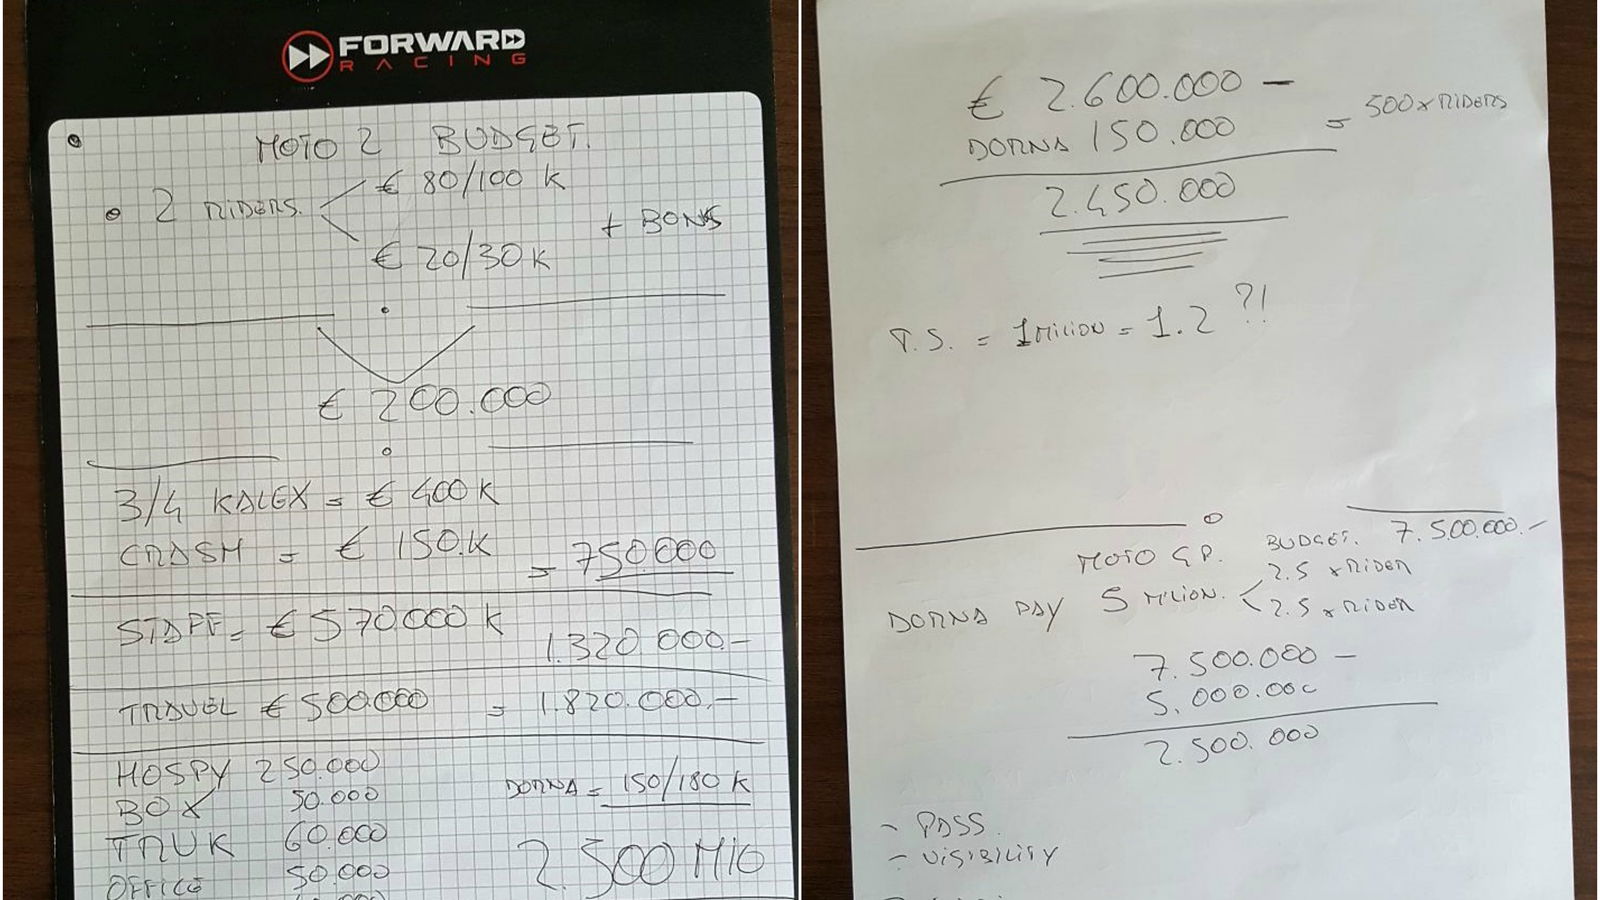 FORWARD
RACING
MOTO 2 BUDGET.
2 RIDERS. € 80/100 K
€ 20/30 K + BONUS
€ 200.000
3/4 KALEX = € 400 K
CRASH = € 150.K = 750.000
STAFF = € 570.000 K 1.320.000.-
TRAVEL € 500.000 = 1.820.000.-
HOSPY 250.000
BOX 50.000
TRUK 60.000
OFFICE 50.000
DORNA = 150/180 K
2.500 MIO
€ 2.600.000 -
DORNA 150.000 = 500 x RIDERS
2.450.000
T.S. = 1 MILION = 1.2 ?!
MOTO GP. BUDGET. 7.500.000.-
DORNA PAY 5 MILION. 2.5 x RIDER
2.5 x RIDER
7.500.000 -
5.000.000
2.500.000
- PASS
- VISIBILITY